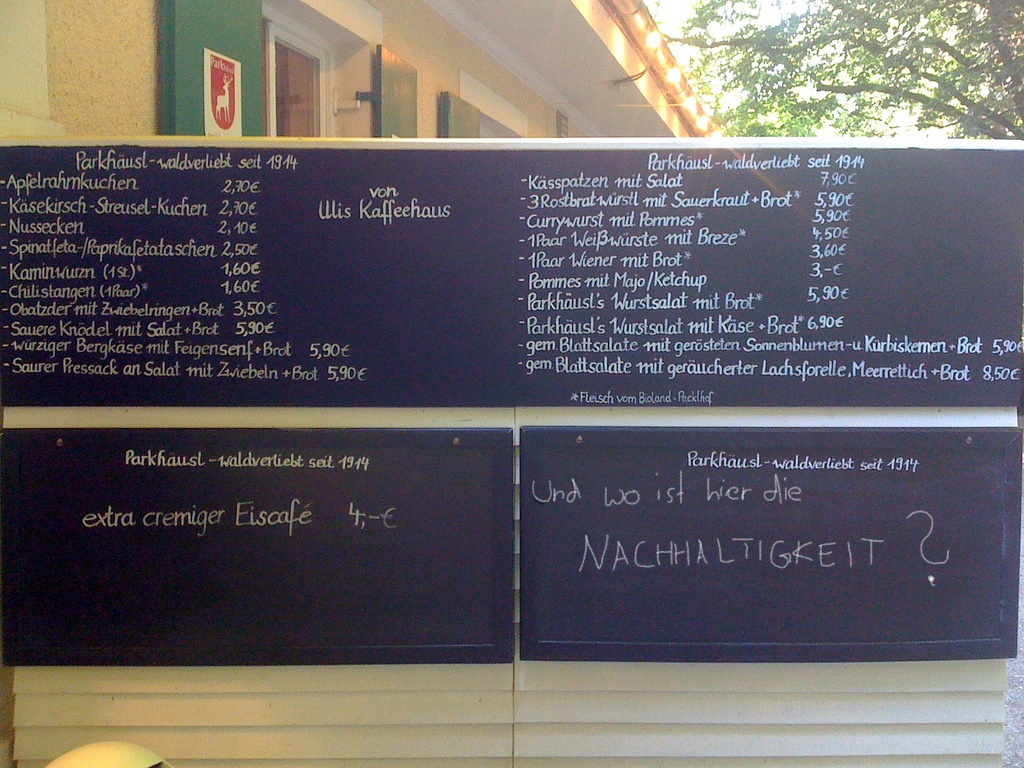 Parkhäusl
Parkhäusl-waldverliebt seit 1914
-Apfelrahmkuchen 2,70€
-Käsekirsch-Streusel-Kuchen 2,70€
-Nussecken 2,10€
-Spinatfeta-/Paprikafetataschen 2,50€
-Kaminwurzn (1St.)* 1,60€
-Chilistangen (1Paar)* 1,60€
-Obatzder mit Zwiebelringen+Brot 3,50€
-Sauere Knödel mit Salat+Brot 5,90€
-würziger Bergkäse mit Feigensenf+Brot 5,90€
-Saurer Pressack an Salat mit Zwiebeln+Brot 5,90€
von
Ulis Kaffeehaus
Parkhäusl-waldverliebt seit 1914
-Kässpatzen mit Salat 7,90€
-3Rostbratwürstl mit Sauerkraut+Brot* 5,90€
-Currywurst mit Pommes* 5,90€
-1Paar Weißwürste mit Breze* 4,50€
-1Paar Wiener mit Brot* 3,60€
-Pommes mit Majo/Ketchup 3,-€
-Parkhäusl's Wurstsalat mit Brot* 5,90€
-Parkhäusl's Wurstsalat mit Käse+Brot* 6,90€
-gem Blattsalate mit gerösteten Sonnenblumen-u Kürbiskernen+Brot 5,90€
-gem Blattsalate mit geräucherter Lachsforelle, Meerrettich+Brot 8,50€
*Fleisch vom Bioland-
Parkhäusl-waldverliebt seit 1914
extra cremiger Eiscafé 4,-€
Parkhäusl-waldverliebt seit 1914
Und wo ist hier die
NACHHALTIGKEIT ?